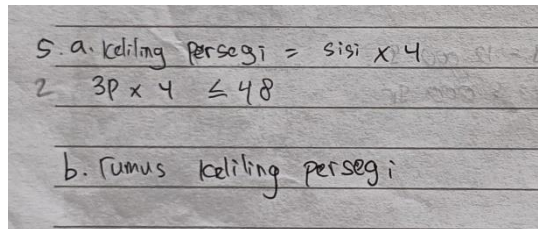 5. a. keliling persegi = sisi x 4
2 3p x 4 ≤ 48
b. rumus keliling persegi